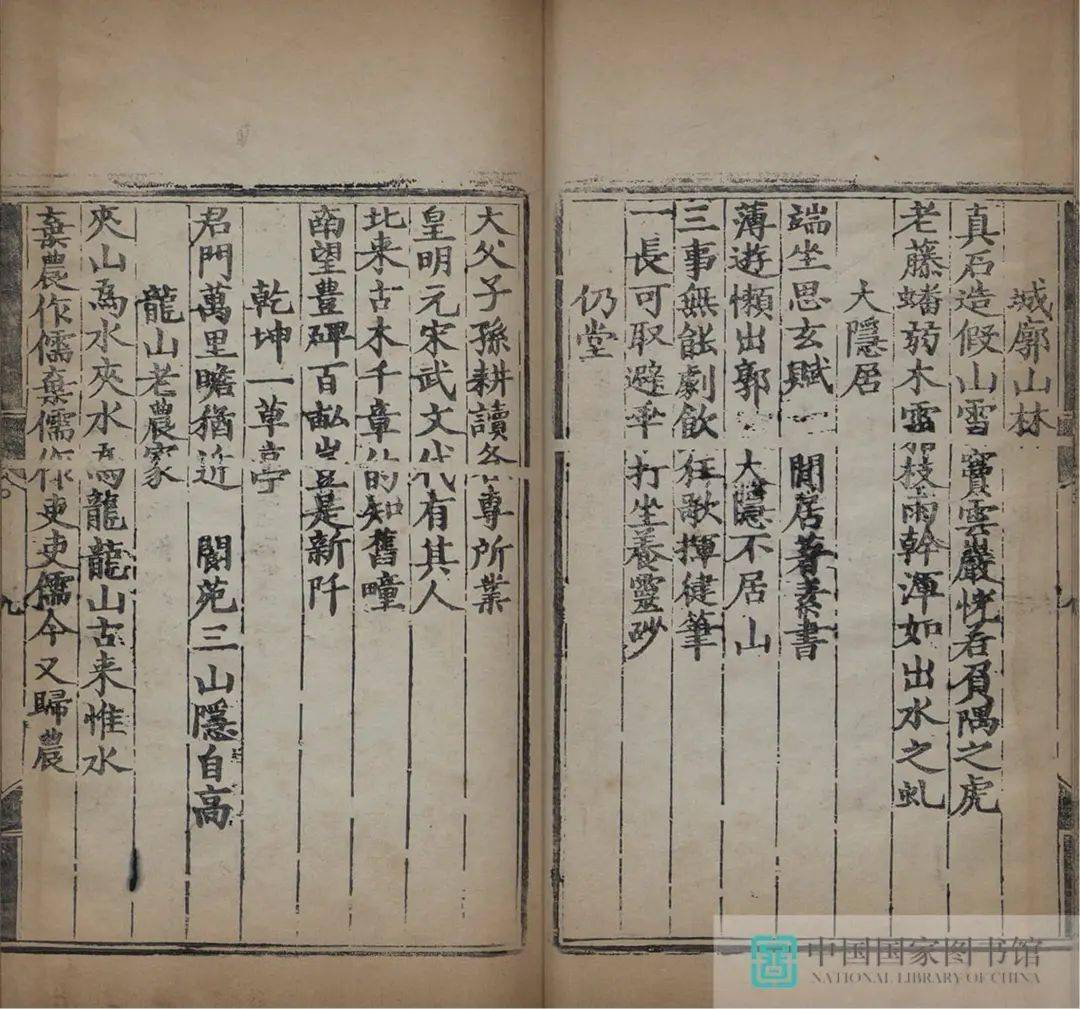 城廓山林
真石造假山雪竇雲巖恍若負隅之虎
老藤蟠弱木雪枝雨幹渾如出水之虬
大隱居
端坐思玄賦 閒居著素書
薄遊懶出郭 大隱不居山
三事無能劇飲狂歌揮健筆
一長可取避 打坐養靈砂
仍堂
大父子孫耕讀各專所業
皇明元宋武文代有其人
北來古木千章的知舊疃
南望豊碑百畝豈是新阡
乾坤一草亭
君門萬里瞻猶近 閬苑三山隱自高
龍山老農家
夾山為水夾水為龍龍山古來惟水
棄農作儒棄儒作吏吏儒今又歸農
九
中国国家图书馆
NATIONAL LIBRARY OF CHINA